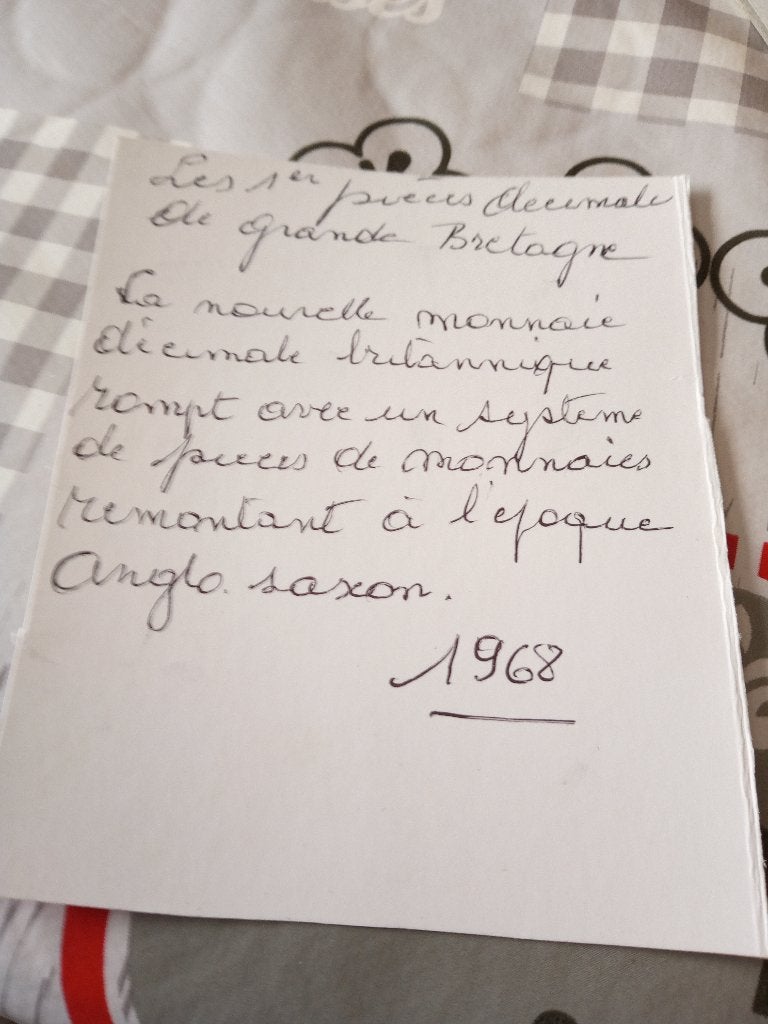 Les 1er pièces décimale
de grande Bretagne
La nouvelle monnaie
décimale britannique
rompt avec un système
de pièces de monnaies
remontant à l'epoque
Anglo. saxon.
1968